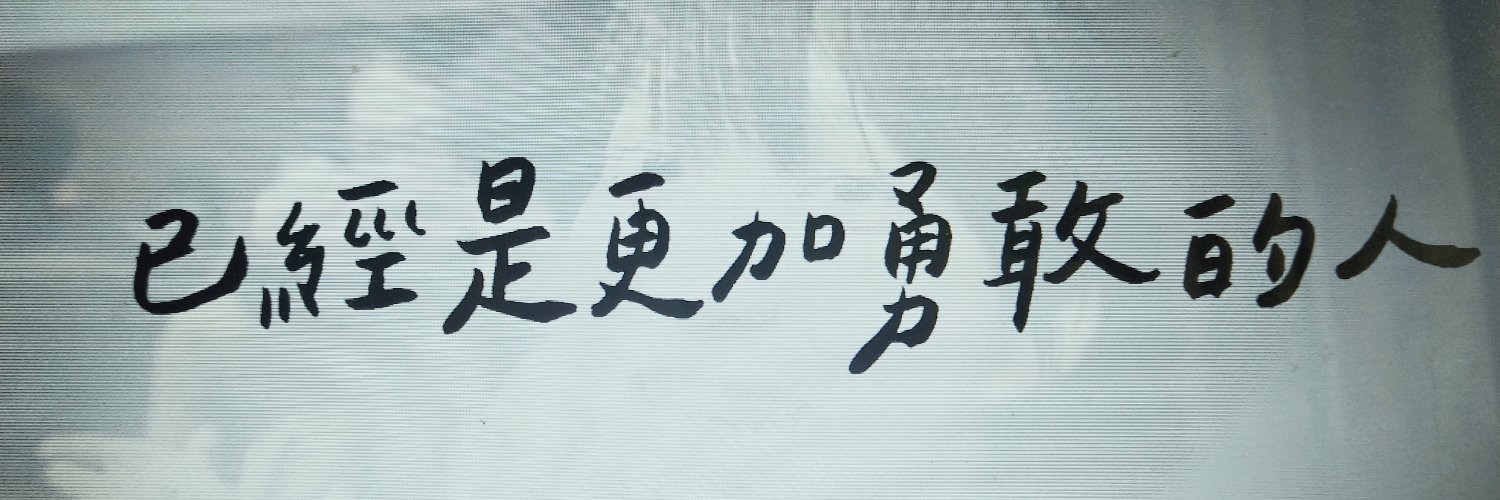 已經是更加勇敢的人